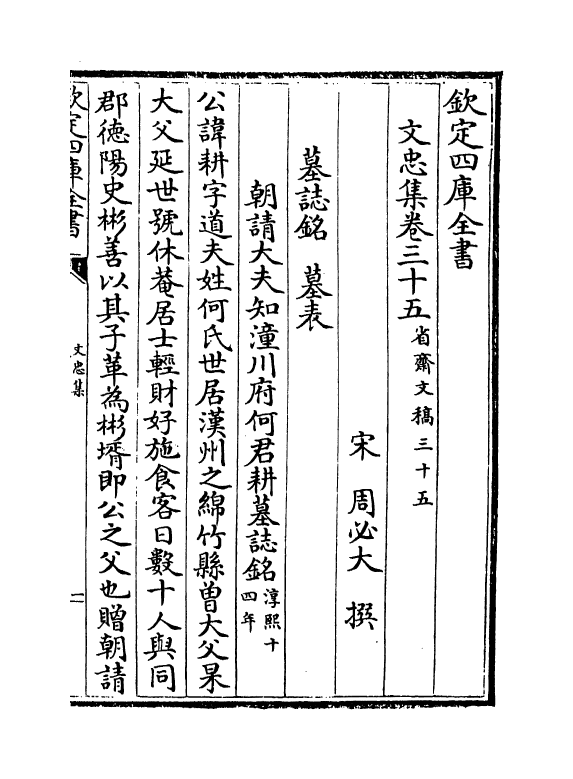 欽定四庫全書
文忠集卷三十五 省齋文稿三十五
宋 周必大 撰
墓誌銘 墓表
朝請大夫知潼川府何君耕墓誌銘 淳熙十四年
公諱耕字道夫姓何氏世居漢州之綿竹縣曽大父杲
大父延世號休菴居士輕財好施食客日數十人與同
郡徳陽史彬善以其子革為彬壻即公之父也贈朝請
欽定四庫全書
文忠集
一